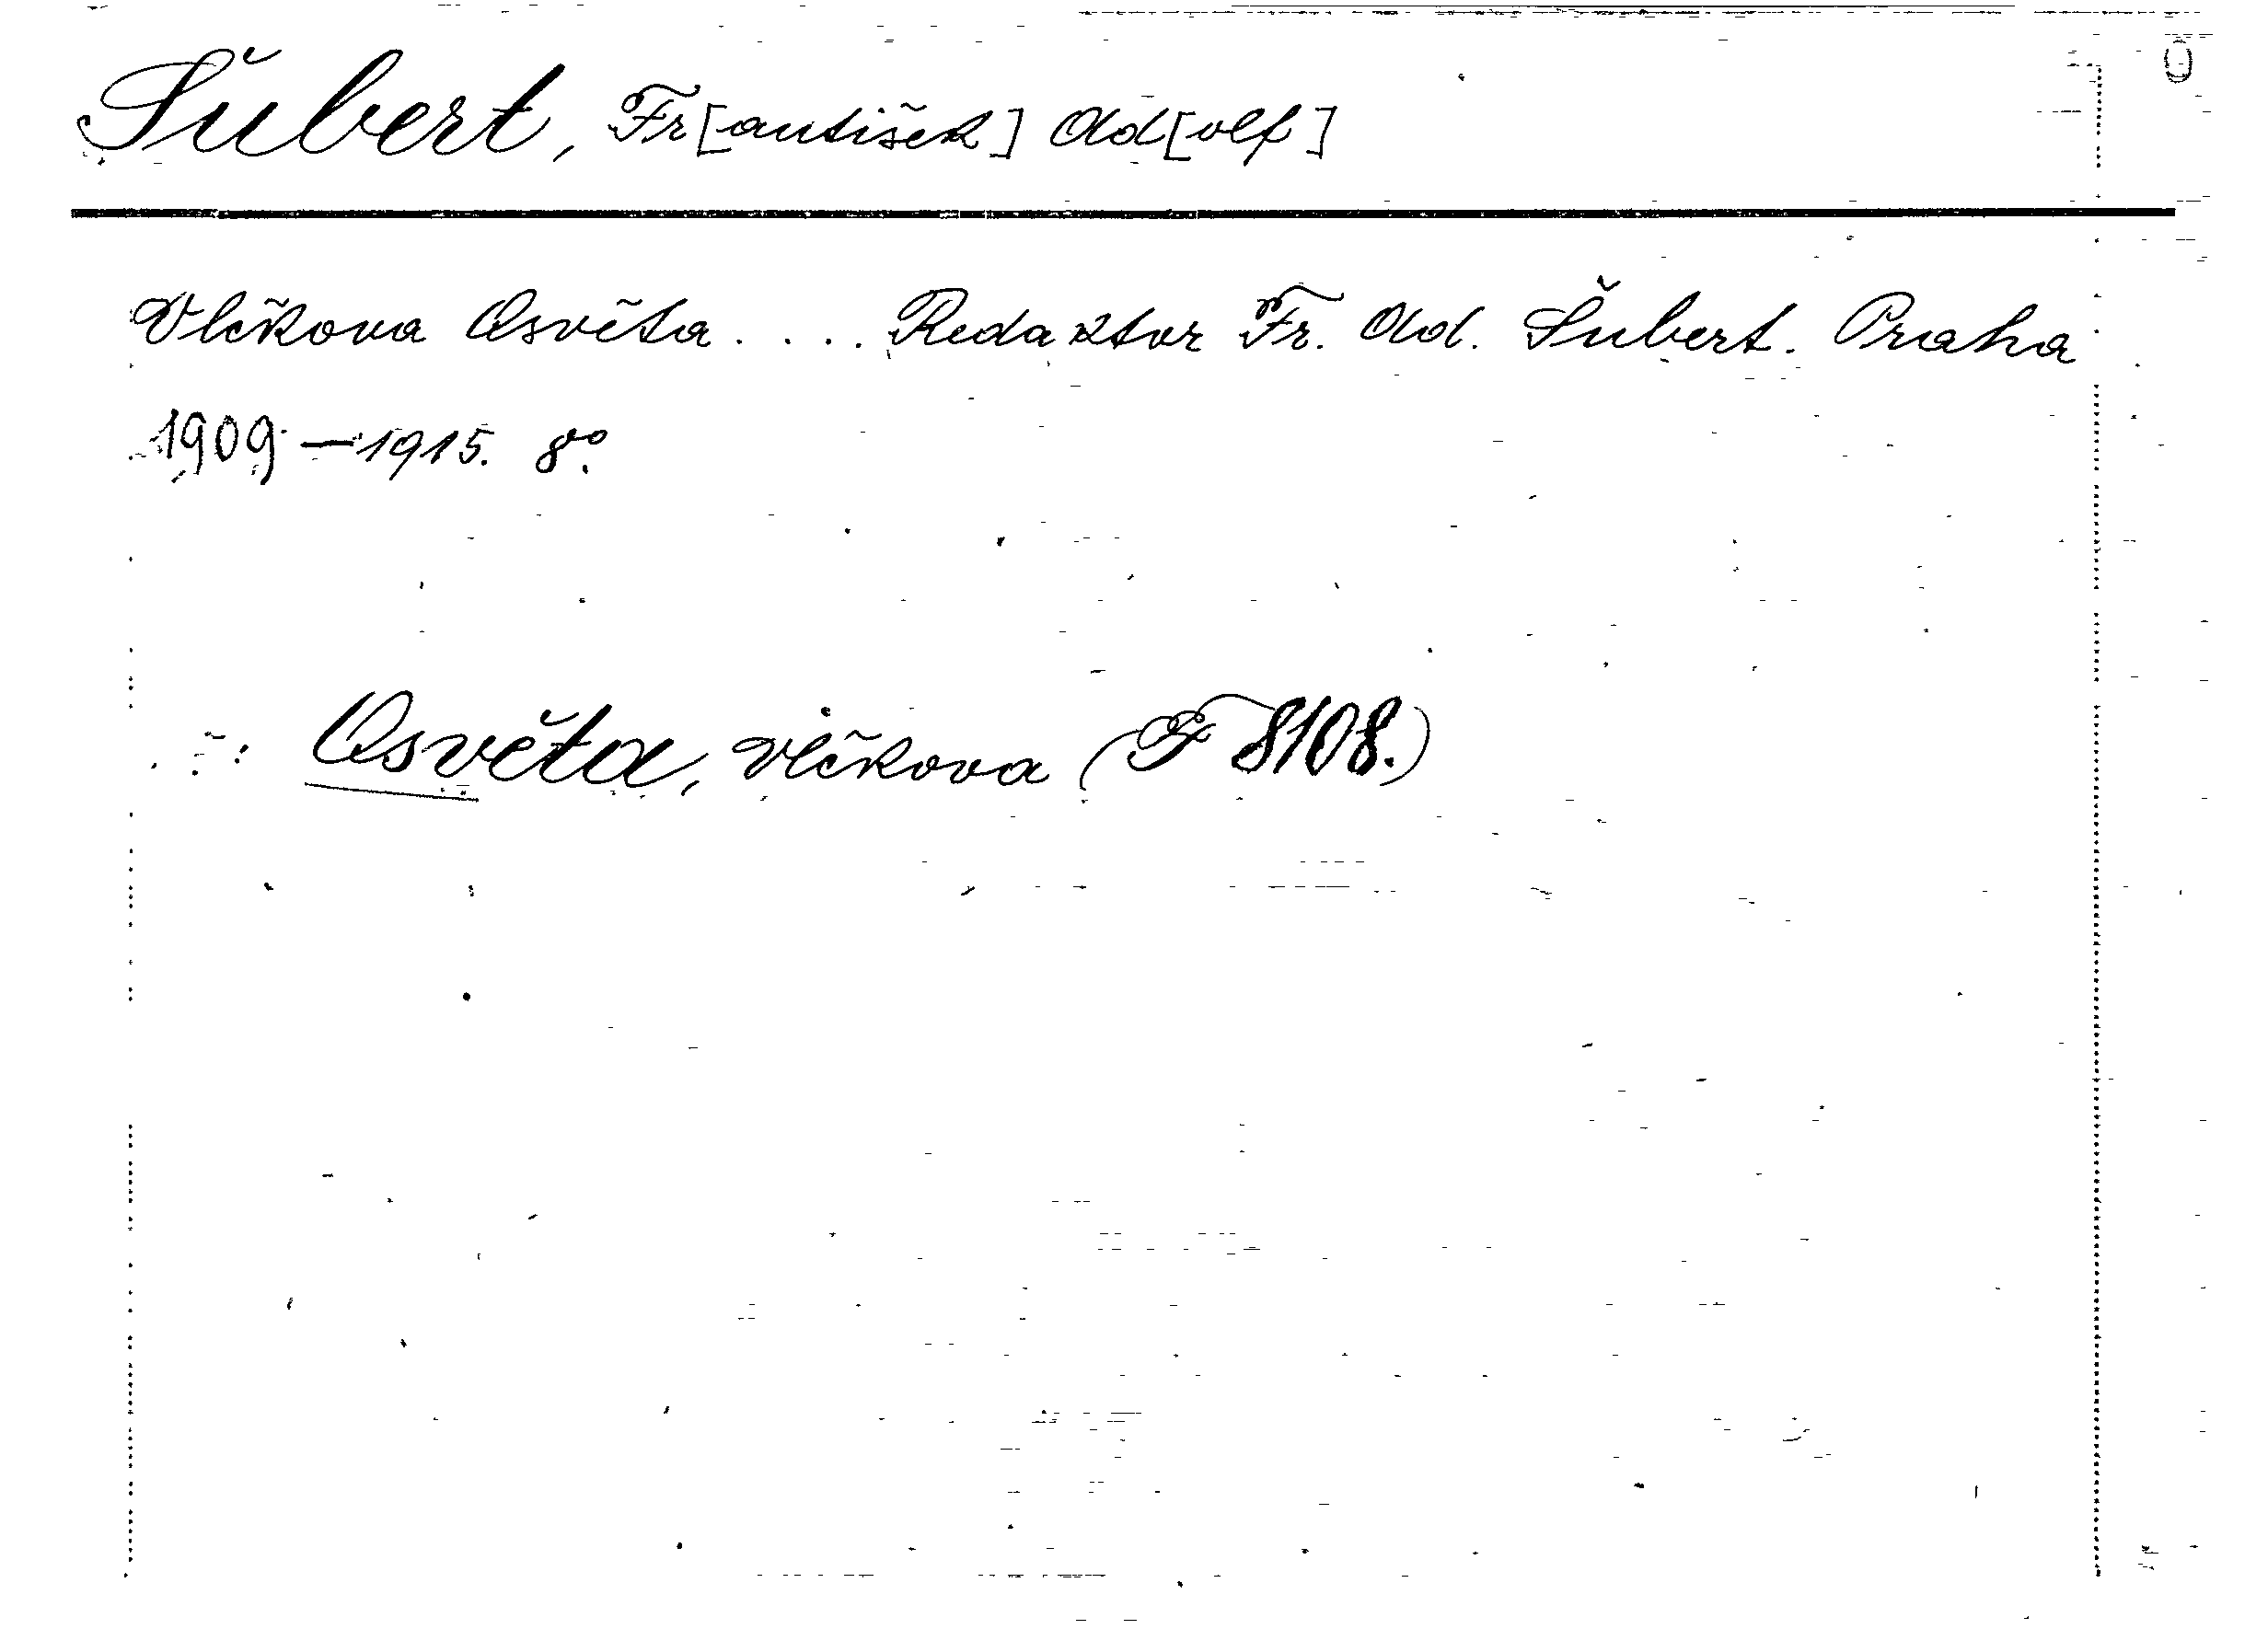 Šubert, Fr[antišek] Ad[olf]
Vlčkova Osvěta.... Redaktor Fr. Ad. Šubert. Praha
1909—1915. 8°.
Osvěta, Vlčkova (F 8108.)